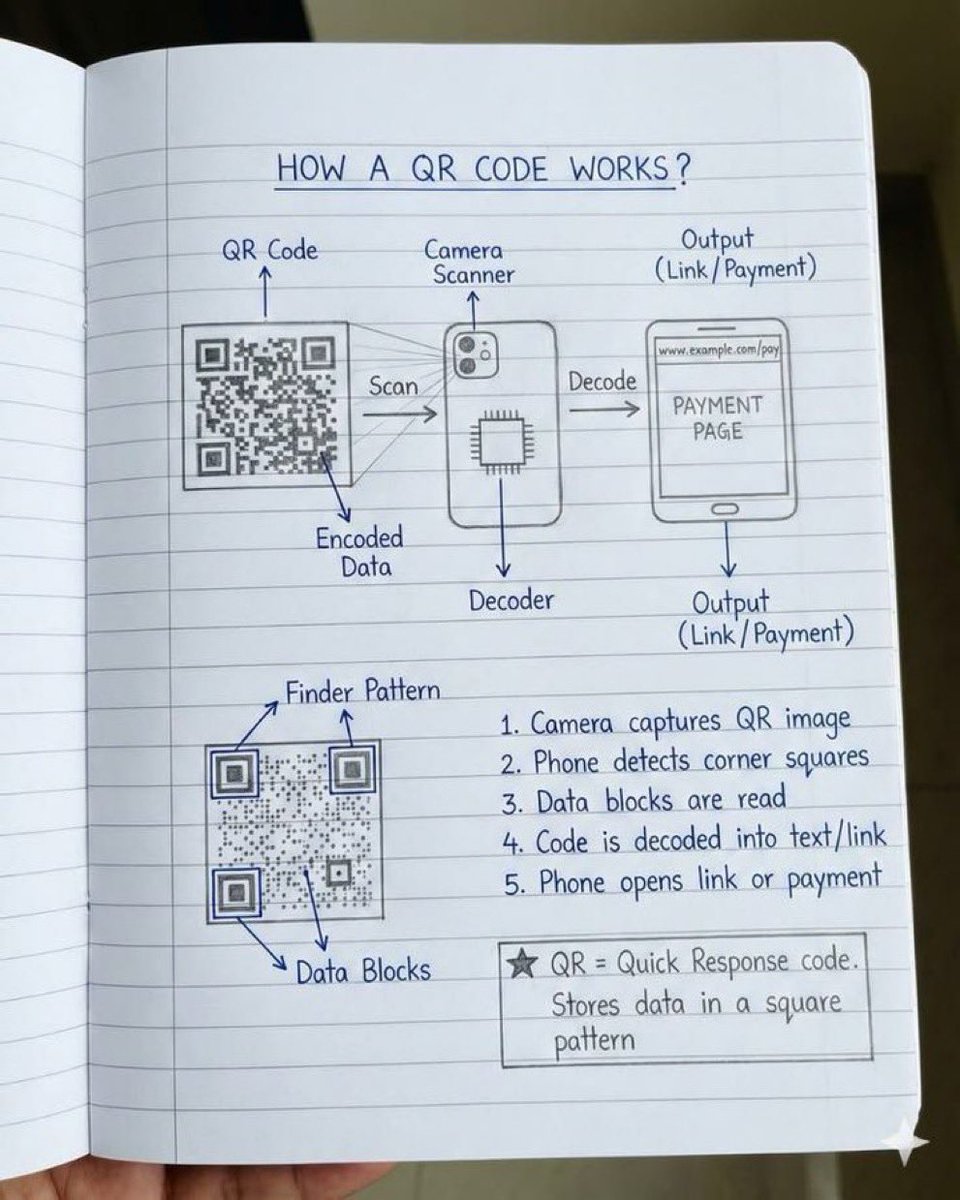 HOW A QR CODE WORKS?
QR Code
Camera
Scanner
Output
(Link/Payment)
Scan
Decode
www.example.com/pay
PAYMENT
PAGE
Encoded
Data
Decoder
Output
(Link/Payment)
Finder Pattern
Data Blocks
1. Camera captures QR image
2. Phone detects corner squares
3. Data blocks are read
4. Code is decoded into text/link
5. Phone opens link or payment
★ QR = Quick Response code.
Stores data in a square
pattern